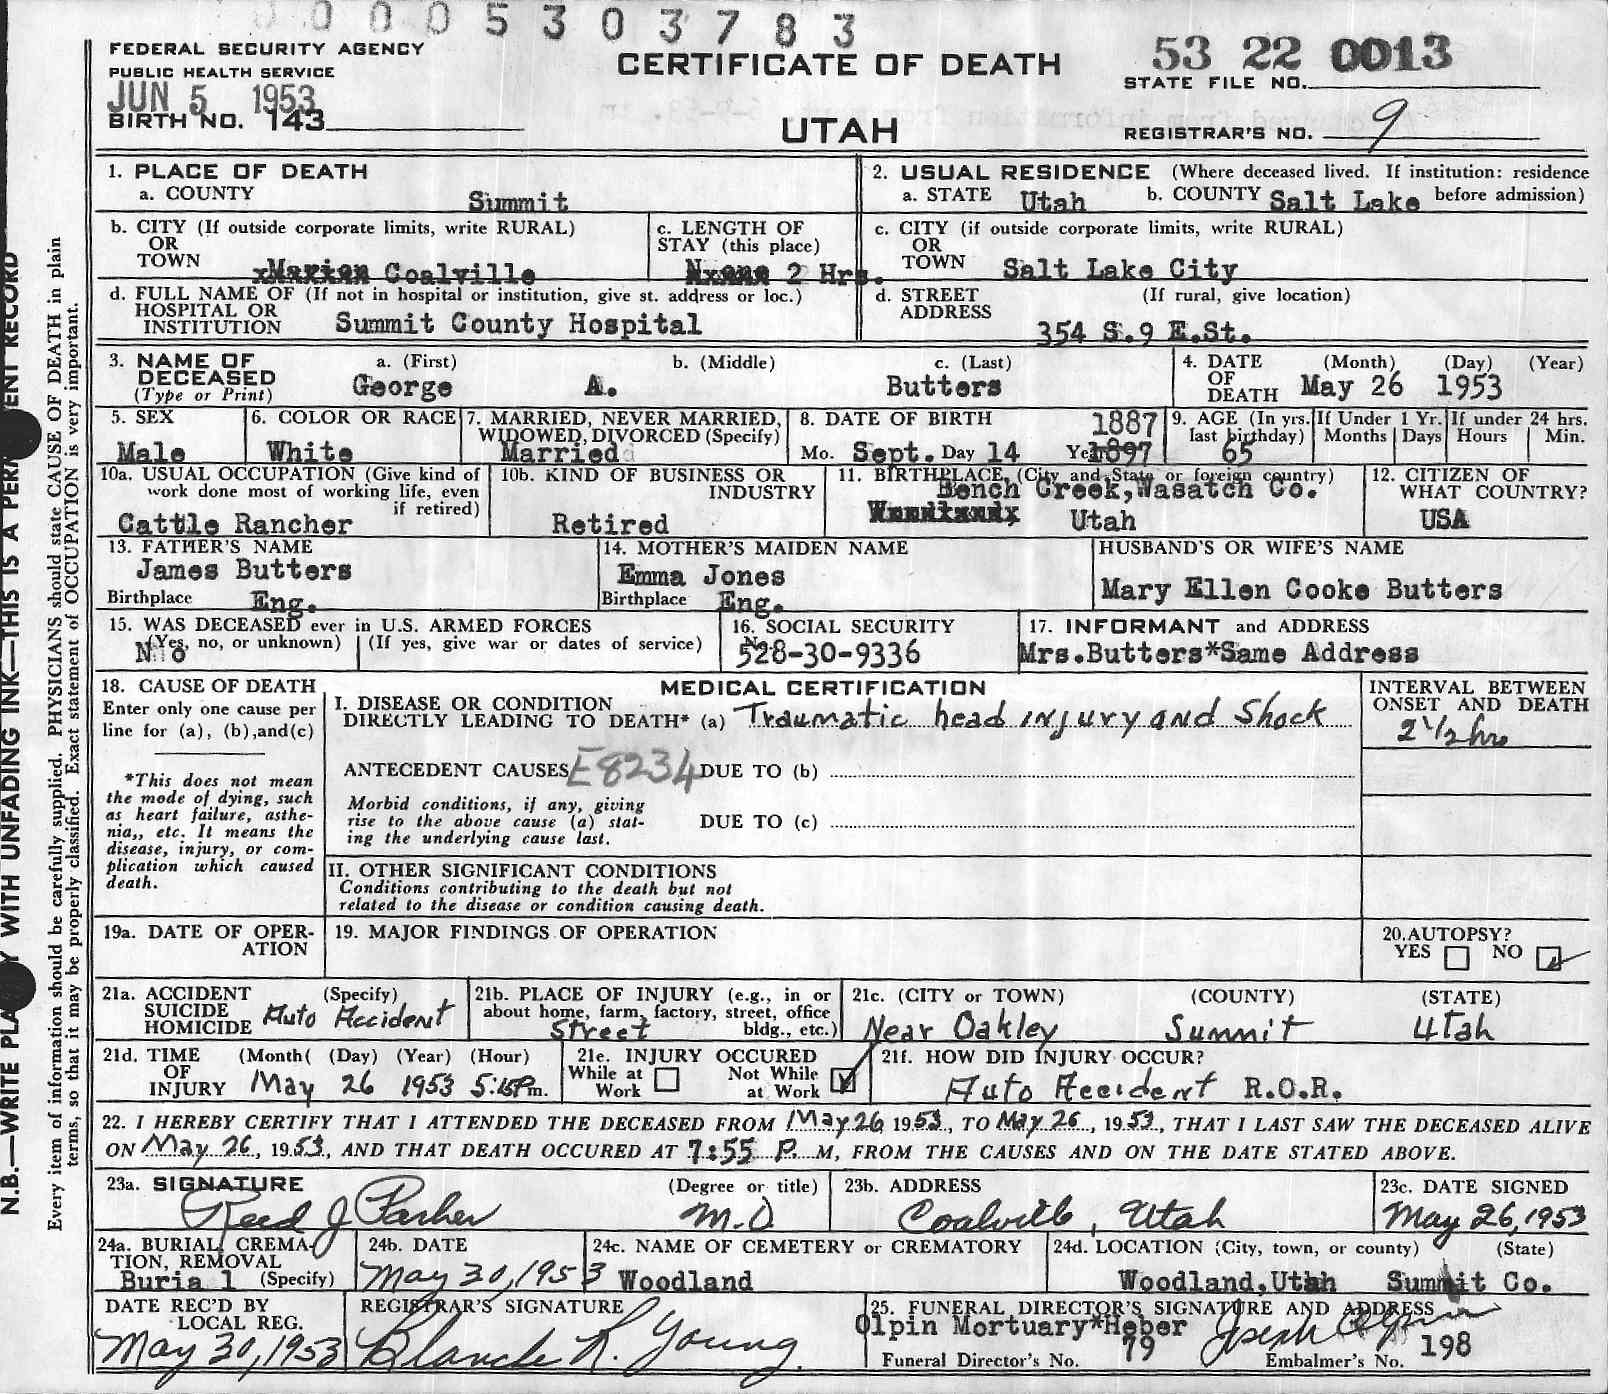 0 0 0 5 3 0 3 7 8 3
FEDERAL SECURITY AGENCY
PUBLIC HEALTH SERVICE
JUN 5 1953
BIRTH NO. 143
CERTIFICATE OF DEATH
UTAH
53 22 0013
STATE FILE NO.
REGISTRAR'S NO. 9
N.B.—WRITE PLA Y WITH UNFADING INK—THIS IS A PERM ENT RECORD
Every item of information should be carefully supplied. PHYSICIANS should state CAUSE OF DEATH in plain
terms, so that it may be properly classified. Exact statement of OCCUPATION is very important.
1. PLACE OF DEATH
a. COUNTY Summit
2. USUAL RESIDENCE (Where deceased lived. If institution: residence
a. STATE Utah b. COUNTY Salt Lake before admission)
b. CITY (If outside corporate limits, write RURAL)
OR
TOWN Marion Coalville
c. LENGTH OF
STAY (this place)
2 Hrs.
c. CITY (if outside corporate limits, write RURAL)
OR
TOWN Salt Lake City
d. FULL NAME OF (If not in hospital or institution, give st. address or loc.)
HOSPITAL OR
INSTITUTION Summit County Hospital
d. STREET (If rural, give location)
ADDRESS
354 S.9 E.St.
3. NAME OF
DECEASED
(Type or Print)
a. (First) b. (Middle) c. (Last)
George A. Butters
4. DATE (Month) (Day) (Year)
OF
DEATH May 26 1953
5. SEX
Male
6. COLOR OR RACE
White
7. MARRIED, NEVER MARRIED,
WIDOWED, DIVORCED (Specify)
Married
8. DATE OF BIRTH 1887
Mo. Sept. Day 14 Ye 1897
9. AGE (In yrs.
last birthday)
65
If Under 1 Yr.
Months Days
If under 24 hrs.
Hours Min.
10a. USUAL OCCUPATION (Give kind of
work done most of working life, even
if retired)
Cattle Rancher
10b. KIND OF BUSINESS OR
INDUSTRY
Retired
11. BIRTHPLACE (City and State or foreign country)
Bench Creek,Wasatch Co.
Utah
12. CITIZEN OF
WHAT COUNTRY?
USA
13. FATHER'S NAME
James Butters
Birthplace Eng.
14. MOTHER'S MAIDEN NAME
Emma Jones
Birthplace Eng.
HUSBAND'S OR WIFE'S NAME
Mary Ellen Cooke Butters
15. WAS DECEASED ever in U.S. ARMED FORCES
(Yes, no, or unknown) (If yes, give war or dates of service)
No
16. SOCIAL SECURITY
528-30-9336
17. INFORMANT and ADDRESS
Mrs.Butters*Same Address
18. CAUSE OF DEATH
Enter only one cause per
line for (a), (b),and(c)
*This does not mean
the mode of dying, such
as heart failure, asthe-
nia,, etc. It means the
disease, injury, or com-
plication which caused
death.
MEDICAL CERTIFICATION
I. DISEASE OR CONDITION
DIRECTLY LEADING TO DEATH* (a) Traumatic head injury and Shock
ANTECEDENT CAUSES E8234 DUE TO (b)
Morbid conditions, if any, giving
rise to the above cause (a) stat-
ing the underlying cause last.
DUE TO (c)
II. OTHER SIGNIFICANT CONDITIONS
Conditions contributing to the death but not
related to the disease or condition causing death.
INTERVAL BETWEEN
ONSET AND DEATH
2 1/2 hrs
19a. DATE OF OPER-
ATION
19. MAJOR FINDINGS OF OPERATION
20.AUTOPSY?
YES NO
21a. ACCIDENT (Specify)
SUICIDE
HOMICIDE Auto Accident
21b. PLACE OF INJURY (e.g., in or
about home, farm, factory, street, office
bldg., etc.)
Street
21c. (CITY or TOWN) (COUNTY) (STATE)
Near Oakley Summit Utah
21d. TIME (Month( (Day) (Year) (Hour)
OF
INJURY May 26 1953 5:15Pm.
21e. INJURY OCCURED
While at Work Not While at Work
21f. HOW DID INJURY OCCUR?
Auto Accident R.O.R.
22. I HEREBY CERTIFY THAT I ATTENDED THE DECEASED FROM May 26, 1953, TO May 26, 1953, THAT I LAST SAW THE DECEASED ALIVE
ON May 26, 1953, AND THAT DEATH OCCURED AT 7:55 P. M, FROM THE CAUSES AND ON THE DATE STATED ABOVE.
23a. SIGNATURE (Degree or title)
Reed J Parker M.D.
23b. ADDRESS
Coalville, Utah
23c. DATE SIGNED
May 26, 1953
24a. BURIAL, CREMA-
TION, REMOVAL
Buria l (Specify)
24b. DATE
May 30, 1953
24c. NAME OF CEMETERY or CREMATORY
Woodland
24d. LOCATION (City, town, or county) (State)
Woodland,Utah Summit Co.
DATE REC'D BY
LOCAL REG.
May 30, 1953
REGISTRAR'S SIGNATURE
Blanche R. Young
25. FUNERAL DIRECTOR'S SIGNATURE AND ADDRESS
Olpin Mortuary*Heber Joseph Olpin
Funeral Director's No. 79 Embalmer's No. 198